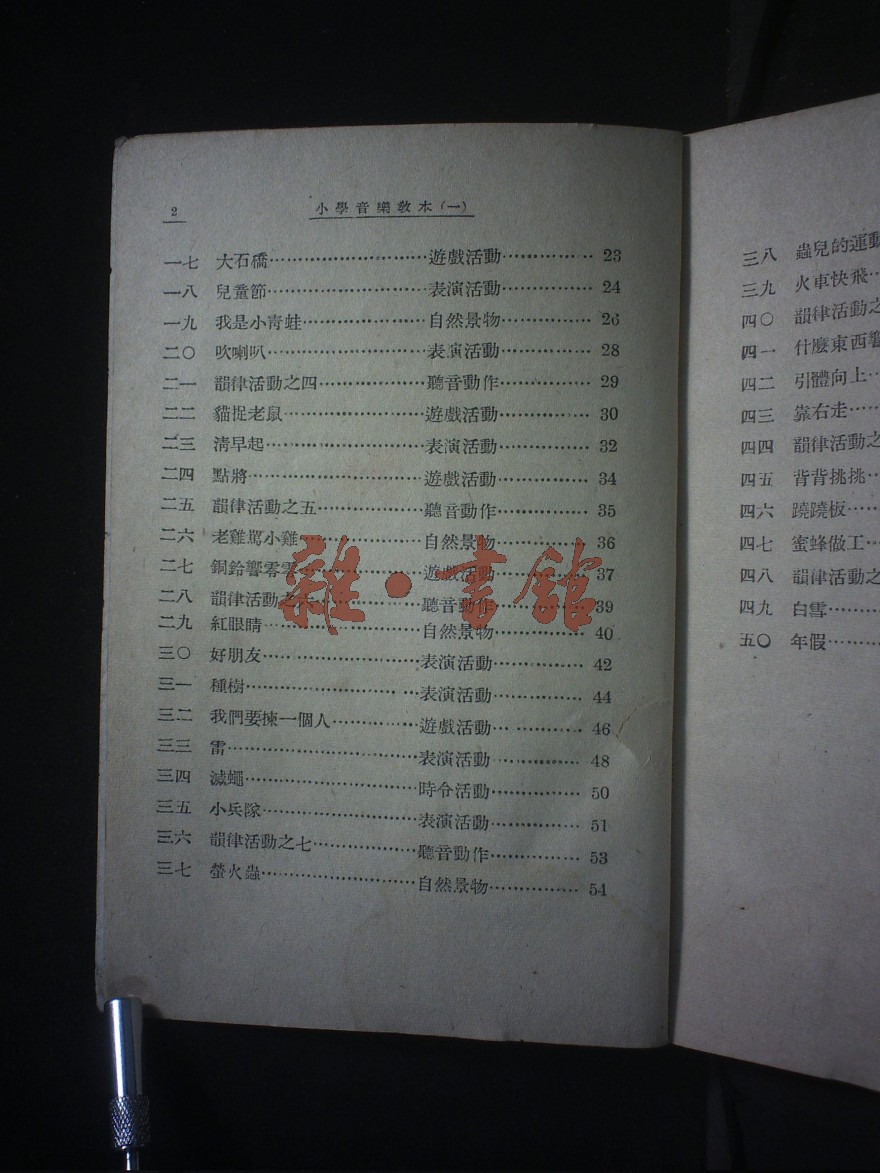 2 小學音樂教本(一)
一七 大石橋…………………………遊戲活動…………… 23
一八 兒童節…………………………表演活動…………… 24
一九 我是小青蛙……………………自然景物…………… 26
二〇 吹喇叭…………………………表演活動…………… 28
二一 韻律活動之四…………………聽音動作…………… 29
二二 貓捉老鼠………………………遊戲活動…………… 30
二三 清早起…………………………表演活動…………… 32
二四 點將……………………………遊戲活動…………… 34
二五 韻律活動之五…………………聽音動作…………… 35
二六 老雞罵小雞……………………自然景物…………… 36
二七 銅鈴響零零……………………遊戲活動…………… 37
二八 韻律活動之六…………………聽音動作…………… 39
二九 紅眼睛…………………………自然景物…………… 40
三〇 好朋友…………………………表演活動…………… 42
三一 種樹……………………………表演活動…………… 44
三二 我們要揀一個人………………遊戲活動…………… 46
三三 雷………………………………表演活動…………… 48
三四 滅蠅……………………………時令活動…………… 50
三五 小兵隊…………………………表演活動…………… 51
三六 韻律活動之七…………………聽音動作…………… 53
三七 螢火蟲…………………………自然景物…………… 54
雜·書館
三八 蟲兒的運動
三九 火車快飛…
四〇 韻律活動之
四一 什麼東西響
四二 引體向上…
四三 靠右走……
四四 韻律活動之
四五 背背挑挑…
四六 蹺蹺板……
四七 蜜蜂做工…
四八 韻律活動之
四九 白雪………
五〇 年假………